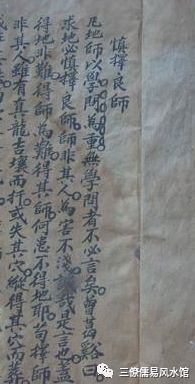 慎擇良師
凡地師以學問為重無學問者不必言矣曾葛谿曰
求地必慎擇良師師非其人為害不淺誠哉是言也蓋
得地非難得師為難得其師何患不得地耶苟擇師
非其人雖有真龍吉壤而扦或失其穴縱得其穴而葬
三僚儒易风水馆